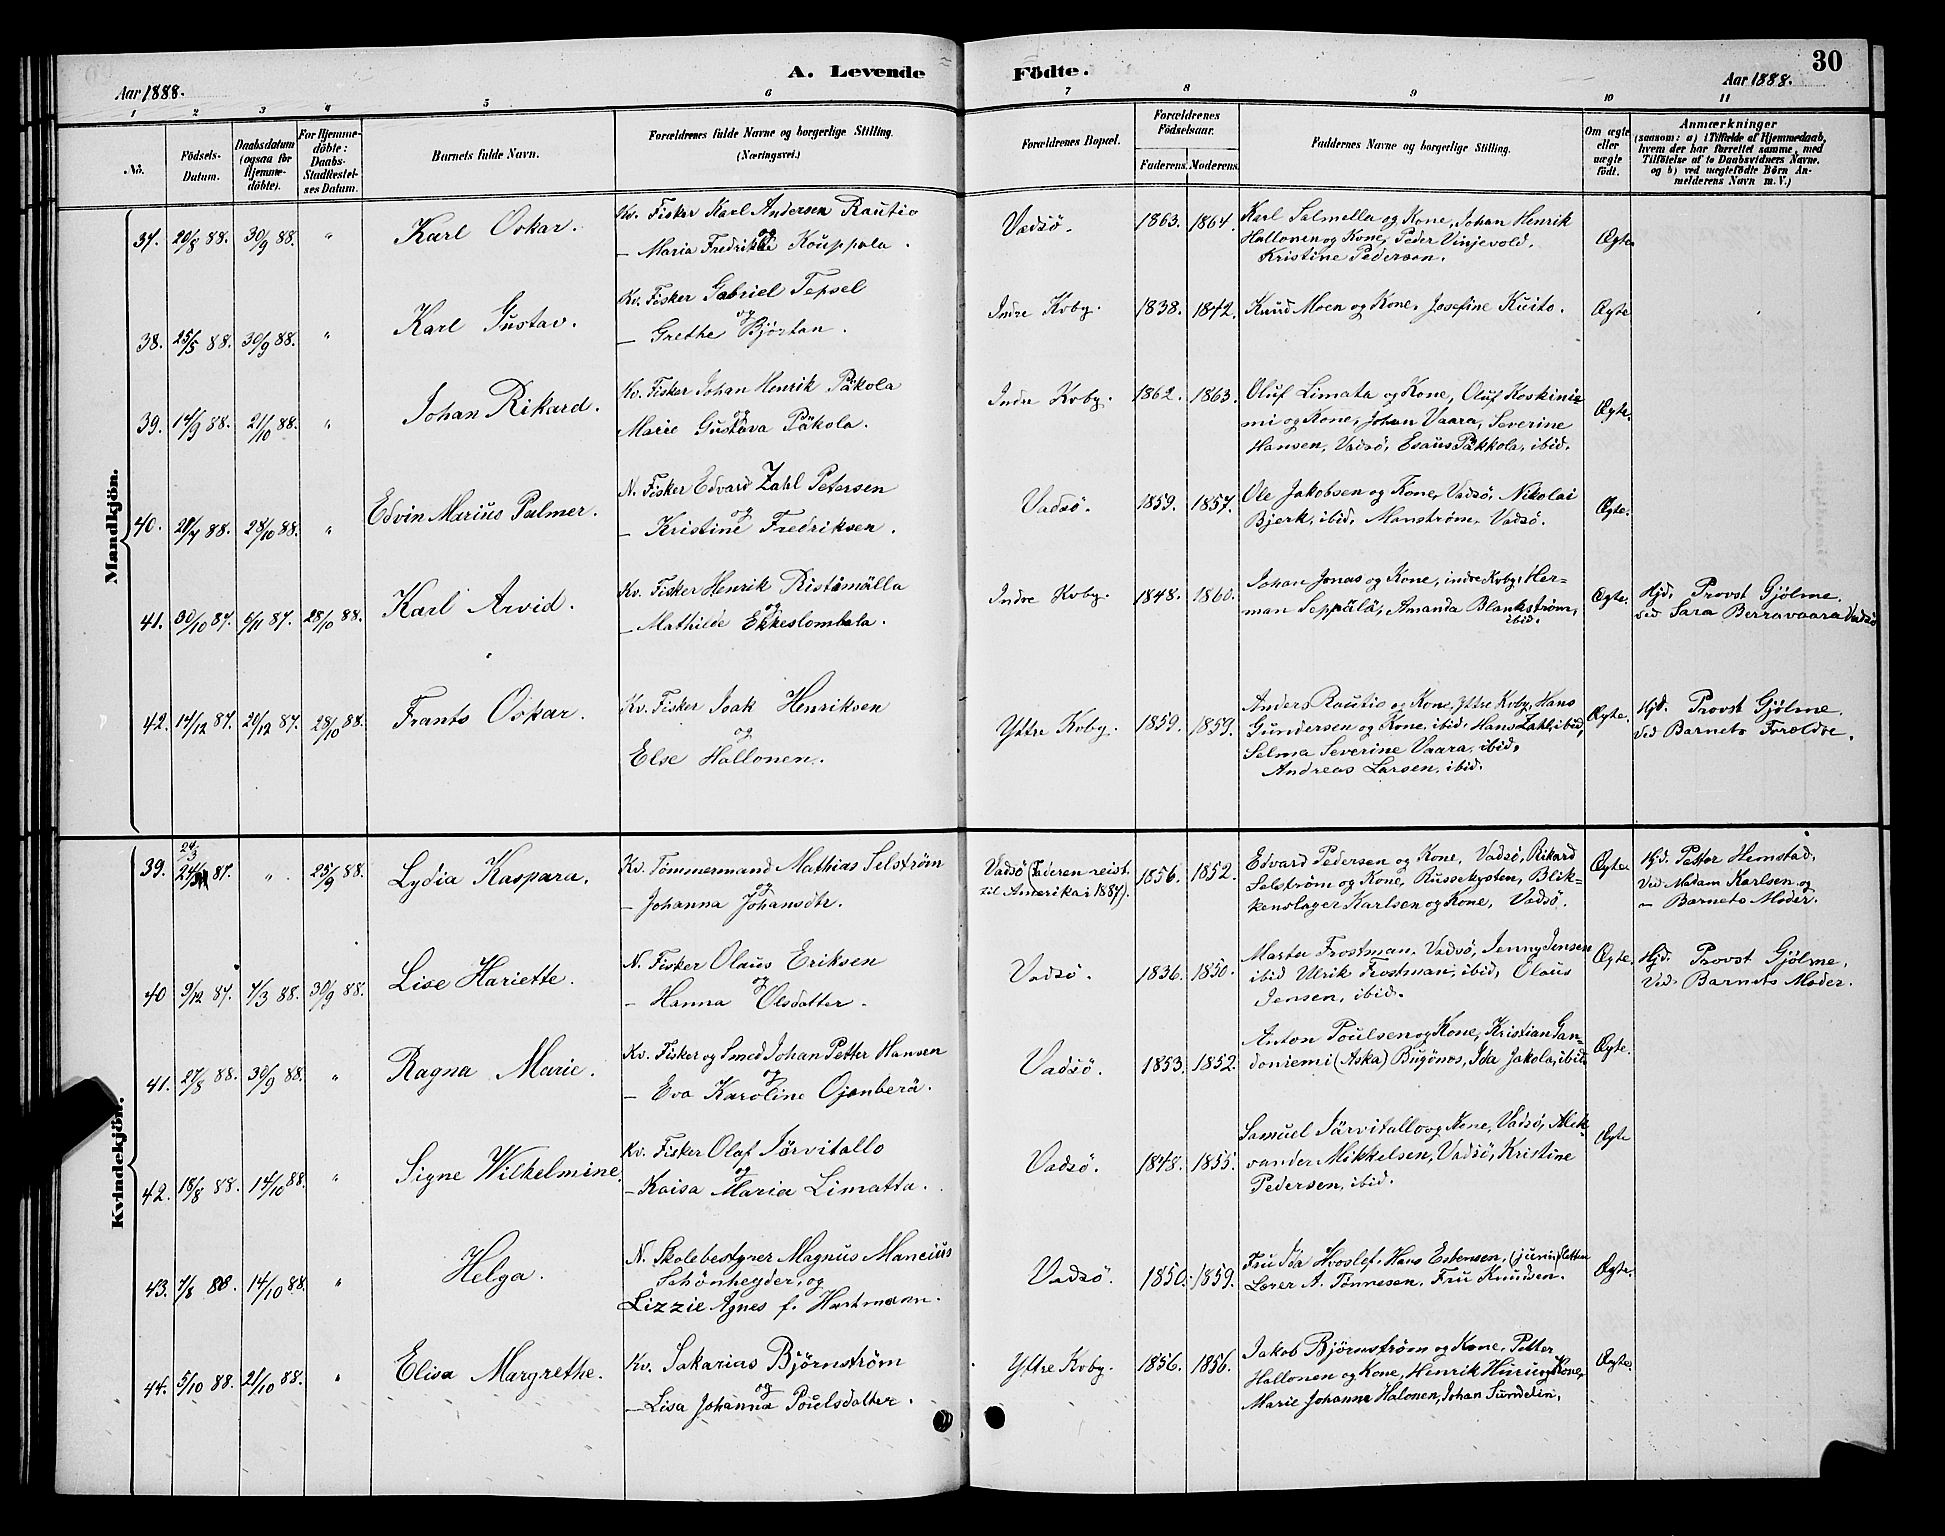 A. Levende Födte.
30
Aar 1888.
Aar 1888.
1 2 3 4 5 6 7 8 9 10 11
No.
Födsels-Datum.
Daabsdatum (ogsaa for Hjemmedöbte).
For Hjemmedöbte: Daabs-Stadfæstelses Datum.
Barnets fulde Navn.
Forældrenes fulde Navne og borgerlige Stilling.
(Næringsvei.)
Forældrenes Bopæl.
Forældrenes Födselsaar.
Faderens. Moderens.
Faddernes Navne og borgerlige Stilling.
Om ægte eller uægte födt.
Anmærkninger
(saasom: a) i Tilfælde af Hjemmedaab, hvem der har forrettet samme, med Tilföielse af to Daabsvidners Navne. og b) ved uægtefödte Börn Anmelderens Navn m. V.)
Mandkjön.
37. 20/8 88. 30/9 88. " Karl Oskar.
Kv. Fisker Karl Andersen Rautio
og
— Maria Fredrikke Kouppala.
Vadsö. 1863. 1864.
Karl Salmella og Kone, Johan Henrik
Hallonen og Kone, Peder Vinjevold,
Kristine Pedersen.
Ægte
38. 25/5 88. 30/9 88. " Karl Gustav.
Kv. Fisker Gabriel Tepsel
og
— Grethe Björtan.
Indre Kvby. 1838. 1842.
Knud Moen og Kone, Josefine Kuito.
Ægte
39. 14/9 88. 21/10 88. " Johan Rikard.
Kv. Fisker Johan Henrik Päkola
og
Marie Gustava Päkola.
Indre Kvby. 1862. 1863.
Oluf Limata og Kone, Oluf Koskinie-
mi og Kone, Johan Vaara, Severine
Hansen, Vadsö, Esaus Päkkola, ibid.
Ægte.
40. 28/10 88. " Edvin Marius Palmer.
N. Fisker Edvard Zahl Petersen
og
— Kristine Fredriksen.
Vadsö. 1859. 1857.
Ole Jakobsen og Kone, Vadsö, Nikolai
Bjerk, ibid, Manström, Vadsö.
Ægte.
41. 30/10 87. 6/11 87. 28/10 88. Karl Arvid.
Kv. Fisker Henrik Ristimälla
og
— Mathilde Ekkeslombala.
Indre Kvby. 1848. 1860.
Johan Jonas og Kone, indre Kvby, Her-
man Seppälä, Amanda Blankström,
ibid.
Ægte.
Hjd. Provst Gjölme.
ved Sara Berravaara Vadsö
42. 14/12 87. 20/12 87. 28/10 88. Frants Oskar.
Kv. Fisker Isak Henriksen
og
Else Hallonen.
Yttre Kvby. 1859. 1853.
Anders Rautio og Kone, Yttre Kvby, Hans
Gundersen og Kone, ibid, Hans Zahl, ibid,
Selma Severine Vaara, ibid,
Andreas Larsen, ibid.
Ægte.
Hjd. Provst Gjölme.
Ved Barnets Forældre.
Kvindekjön.
39. 24/3 87. " 25/9 88. Lydia Kaspara.
Kv. Tömmermand Mathias Selström
og
— Johanna Johansdtr.
Vadsö (Faderen reist
til Amerika i 1887). 1856. 1852.
Edvard Pedersen og Kone, Vadsö, Rikard
Selström og Kone, Russekysten, Blik-
kenslager Karlsen og Kone, Vadsö.
Ægte
Hjd. Petter Hemstad,
Ved Madam Karlsen og
— Barnets Moder.
40 9/12 87. 7/3 88. 30/9 88. Lise Hariette.
N. Fisker Olaus Eriksen
og
— Hanna Olsdatter.
Vadsö. 1836. 1850.
Martha Frostman, Vadsö, Jenny Jensen
ibid Ulrik Frostman, ibid, Olaus
Jensen, ibid.
Ægte.
Hjd. Provst Gjölme,
Ved. Barnets Moder.
41. 27/8 88. 30/9 88. " Ragna Marie.
Kv. Fisker og Smed Johan Petter Hansen
og
— Eva Karoline Ojanberä.
Vadsö. 1853. 1852.
Anton Poulsen og Kone, Kristian San-
doniemi (Aska) Bugönes, Ida Jakola, ibid
Ægte.
42. 18/8 88. 14/10 88. " Signe Wilhelmine.
Kv. Fisker Olaf Järvitallo
og
— Kaisa Maria Limatta.
Vadsö. 1848. 1855.
Samuel Järvitallo og Kone, Vadsö, Alek-
vander Mikkelsen, Vadsö, Kristine
Pedersen, ibid.
Ægte
43. 7/8 88. 14/10 88. " Helga.
N. Skolebestyrer Magnus Mancius
Schönheyder, og
Lizzie Agnes f. Hartmann.
Vadsö. 1850. 1859.
Fru Ida Hvoslef, Hans Esbensen, (junior)
Lærer A. Tönnesen, Fru Knudsen.
Ægte.
44. 5/10 88. 21/10 88. " Elisa Margrethe.
Kv. Sakarias Björnström
og
— Lisa Johanna Poulsdatter.
Yttre Kvby. 1856. 1856.
Jakob Björnström og Kone, Petter
Hallonen og Kone, Henrik Kone,
Marie Johanna Halonen, Johan Sundelin,
Ægte.